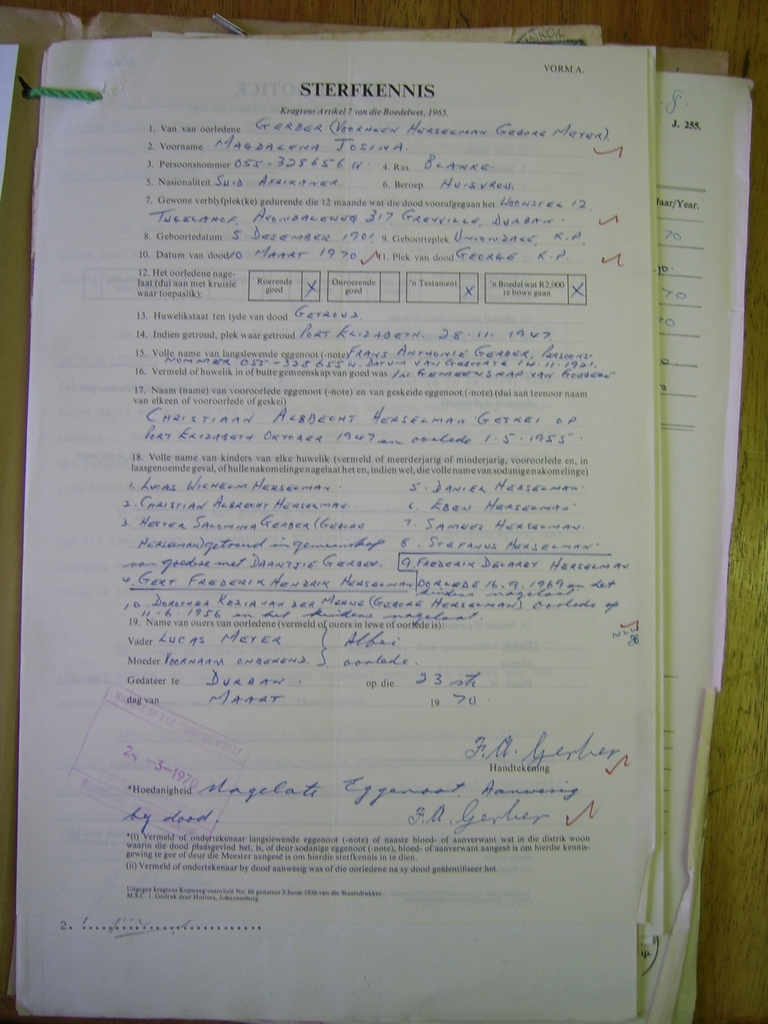 VORM A.
STERFKENNIS
Kragtens Artikel 7 van die Boedelwet, 1965.
1. Van van oorledene GERBER (VOORHEEN HERSELMAN GEBORE MEYER).
2. Voorname MAGDALENA JOSINA.
3. Persoonsnommer 055-328656 W. 4. Ras BLANKE
5. Nasionaliteit SUID AFRIKANER 6. Beroep HUISVROU.
7. Gewone verblyfplek(ke) gedurende die 12 maande wat die dood voorafgegaan het WOONSTEL 12,
TUGELAHOF, AVONDALEWEG 317 GREYVILLE, DURBAN.
8. Geboortedatum 5 DESEMBER 1901 9. Geboorteplek UNIONDALE, K.P.
10. Datum van dood 10 MAART 1970 11. Plek van dood GEORGE K.P.
12. Het oorledene nage-
laat (dui aan met kruisie
waar toepaslik):
Roerende
goed X
Onroerende
goed
'n Testament X
'n Boedel wat R2,000
te bowe gaan X
13. Huwelikstaat ten tyde van dood GETROUD.
14. Indien getroud, plek waar getroud PORT ELIZABETH. 28.11.1947
15. Volle name van langslewende eggenoot (-note) FRANS ANTHONIE GERBER, PERSOONS-
NOMMER 055-328655 W. DATUM VAN GEBOORTE 14.11.1921.
16. Vermeld of huwelik in of buite gemeenskap van goed was IN GEMEENSKAP VAN GOEDERE
17. Naam (name) van vooroorlede eggenoot (-note) en van geskeide eggenoot (-note) (dui aan teenoor naam
van elkeen of vooroorlede of geskei)
CHRISTIAAN ALBRECHT HERSELMAN GESKEI OP
PORT ELIZABETH OKTOBER 1947 en oorlede 1.5.1955.
18. Volle name van kinders van elke huwelik (vermeld of meerderjarig of minderjarig, vooroorlede en, in
laasgenoemde geval, of hulle nakomelinge nagelaat het en, indien wel, die volle name van sodanige nakomelinge)
1. LUCAS WILHELM HERSELMAN. 5. DANIEL HERSELMAN.
2. CHRISTIAN ALBRECHT HERSELMAN 6. EBEN HERSELMAN.
3. HESTER SALOMINA GERBER (GEBORE 7. SAMUEL HERSELMAN.
HERSELMAN) getroud in gemeenskap 8. STEFANUS HERSELMAN
van goedere met DAANTJIE GERBER. 9. FREDERIK DELAREY HERSELMAN
4. GERT FREDERIK HENDRIK HERSELMAN OORLEDE 16.9.1969 en het
kinders nagelaat
10. DOROTHEA KEZIA VAN DER MERWE (GEBORE HERSELMAN) oorlede op
11.6.1956 en het kinders nagelaat.
19. Name van ouers van oorledene (vermeld of ouers in lewe of oorlede is):
Vader LUCAS MEYER } Albei
Moeder VOORNAAM ONBEKEND. } oorlede.
Gedateer te DURBAN. op die 23 ste
dag van MAART 19 70.
24-3-1970
F.A. Gerber
Handtekening
*Hoedanigheid Nagelate Eggenoot. Aanwesig
by dood. F.A. Gerber
*(i) Vermeld of ondertekenaar langslewende eggenoot (-note) of naaste bloed- of aanverwant wat in die distrik woon
waarin die dood plaasgevind het, is, of deur sodanige eggenoot (-note), bloed- of aanverwant aangesê is om hierdie kennis-
gewing te gee of deur die Meester aangesê is om hierdie sterfkennis in te dien.
(ii) Vermeld of ondertekenaar by dood aanwesig was of die oorledene na sy dood geïdentifiseer het.
2.
8.
J. 255.
Jaar/Year.
70
70